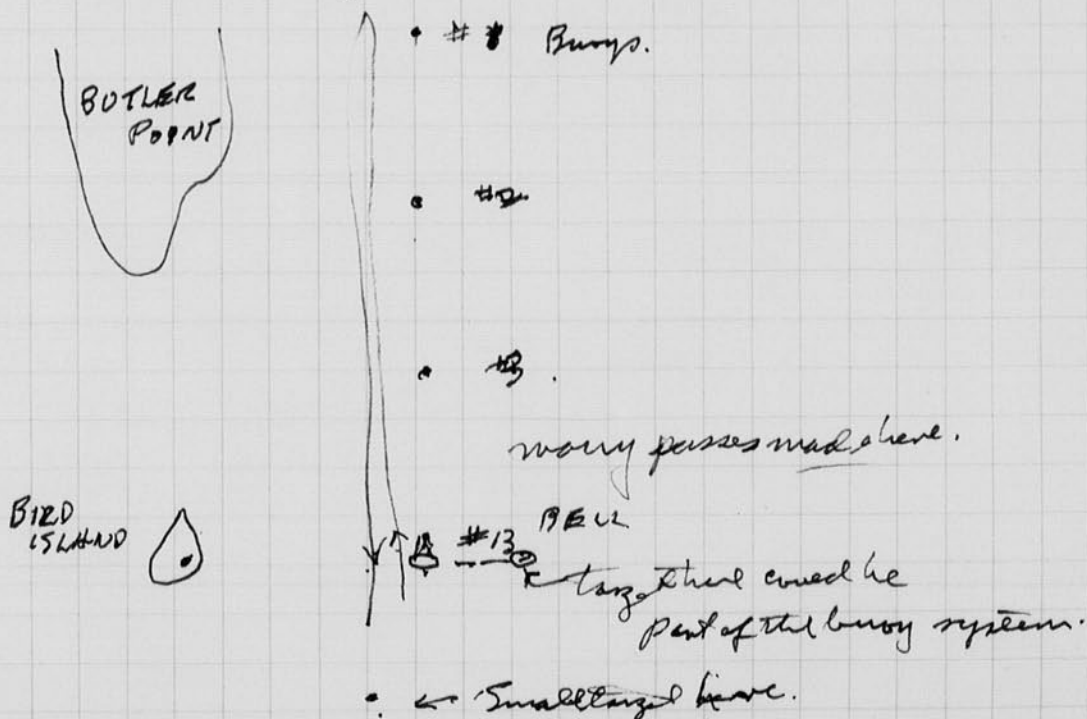 # Buoys.
BUTLER
POINT
#2
#3 .
many passes made here.
BIRD
ISLAND
#13 BELL
target here could be
part of the buoy system.
← Small target here.